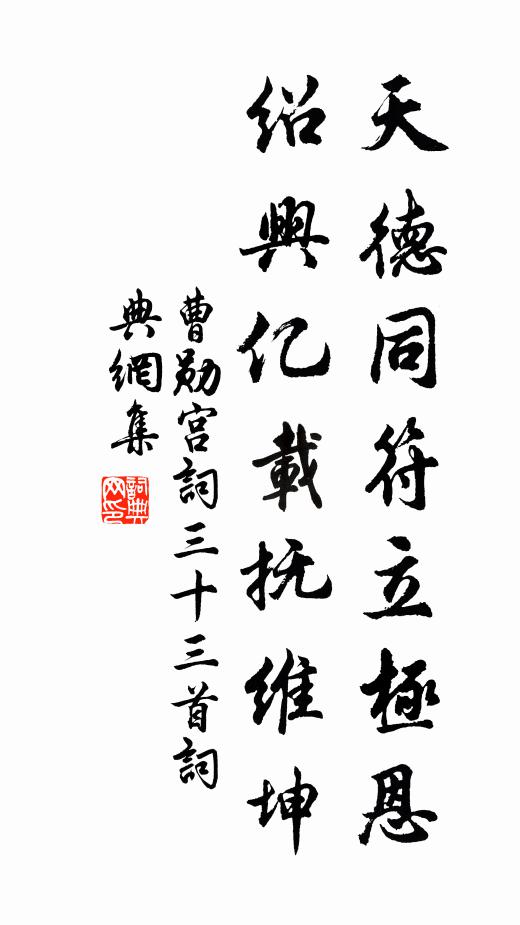 天德同符立極恩
绍興亿載抚維坤
曹勋宫詞三十三首詞
典網集
詞典网印